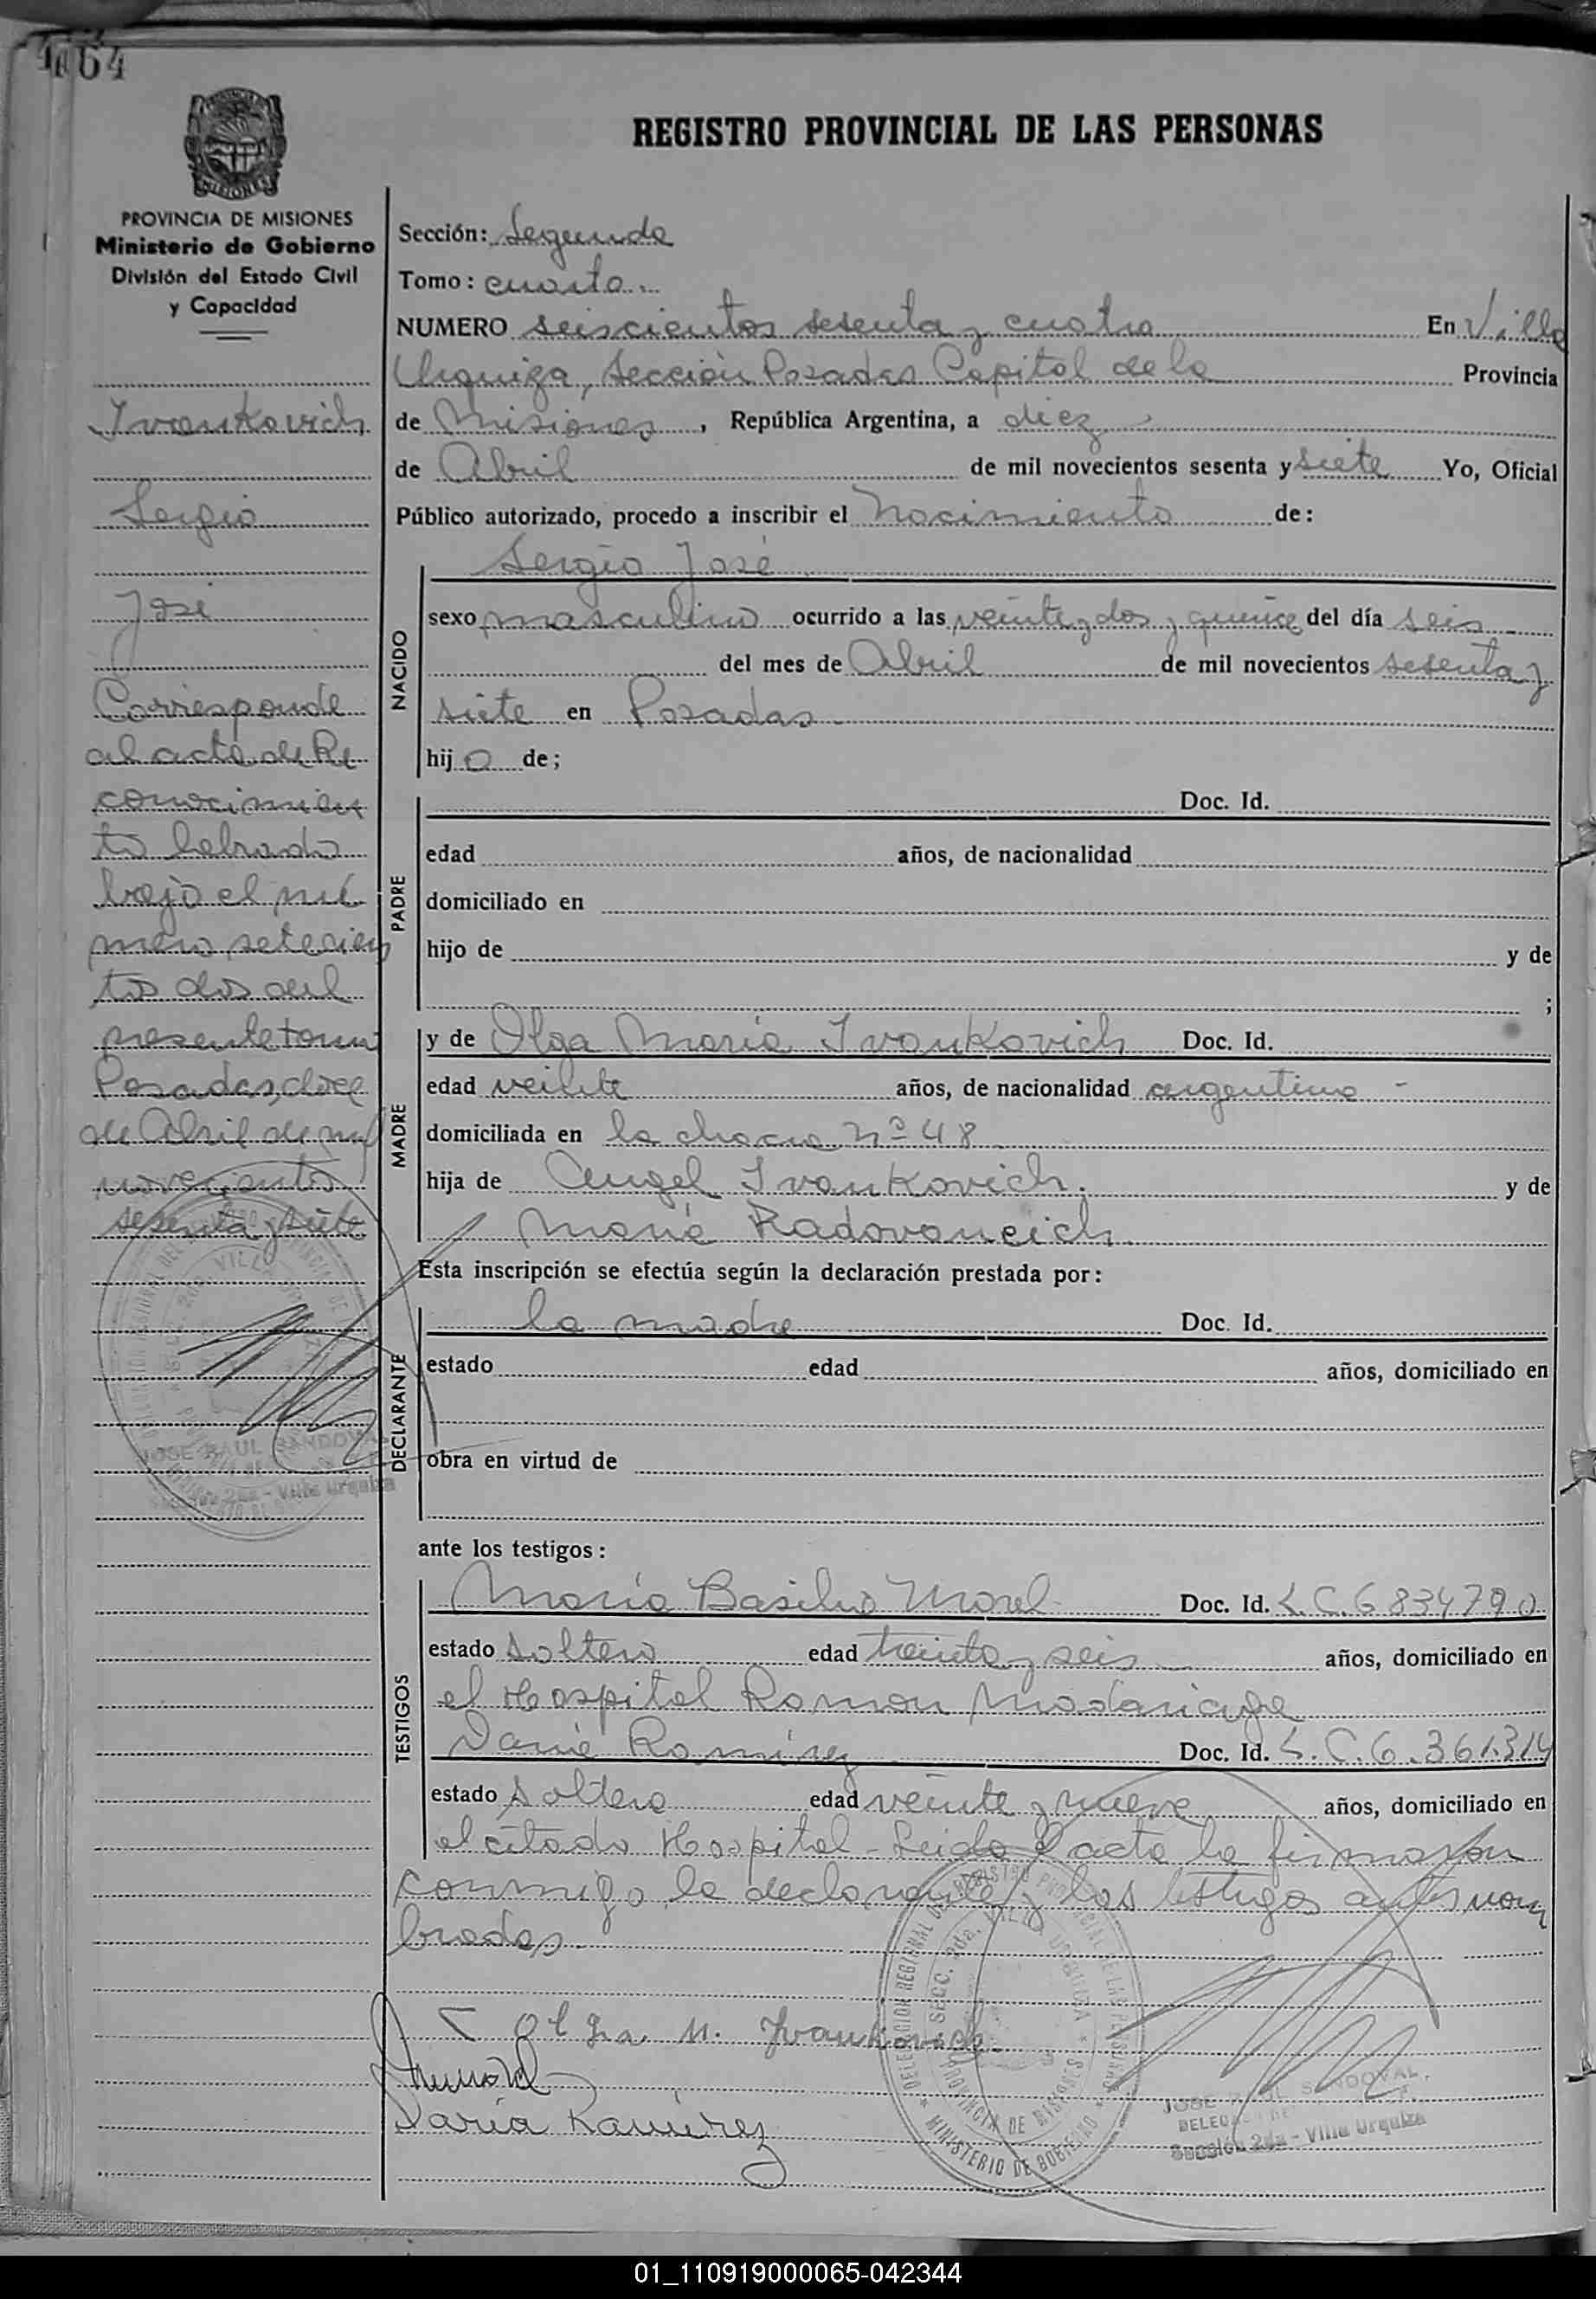 64
REGISTRO PROVINCIAL DE LAS PERSONAS
MISIONES
PROVINCIA DE MISIONES
Ministerio de Gobierno
División del Estado Civil
y Capacidad
Ivankovich
Sergio
José
Corresponde
al acta de Re
conocimien
to labrado
bajo el nú
mero setecien
tos dos del
presente tomo
Posadas, doce
de Abril de mil
novecientos
sesenta y siete
JOSE RAUL SANDOVAL
Sección 2da - Villa Urquiza
Sección: Segunda
Tomo: cuarto
NUMERO seiscientos sesenta y cuatro En Villa
Urquiza, Sección Posadas Capital de la Provincia
de Misiones, República Argentina, a diez
de Abril de mil novecientos sesenta y siete Yo, Oficial
Público autorizado, procedo a inscribir el Nacimiento de:
NACIDO
Sergio José
sexo masculino ocurrido a las veinte y dos y quince del día seis
del mes de Abril de mil novecientos sesenta y
siete en Posadas
hijo de;
PADRE
Doc. Id.
edad años, de nacionalidad
domiciliado en
hijo de y de
;
MADRE
y de Olga María Ivankovich Doc. Id.
edad veinte años, de nacionalidad argentina -
domiciliada en la chacra nº 48
hija de Angel Ivankovich. y de
María Radovancich.
Esta inscripción se efectúa según la declaración prestada por:
DECLARANTE
la madre Doc. Id.
estado edad años, domiciliado en
obra en virtud de
ante los testigos:
TESTIGOS
María Basilia Morel Doc. Id. L.C. 6834790
estado soltera edad treinta y seis años, domiciliado en
el Hospital Ramon Madariaga
Daria Ramirez Doc. Id. L.C. 6.361.314
estado soltera edad veinte y nueve años, domiciliado en
el citado Hospital - Leida el acta la firmaron
conmigo la declarante y los testigos antes nom
brados.
Olga. M. Ivankovich
Daria Ramirez
DELEGACION REGIONAL DEL REGISTRO PROVINCIAL DE LAS PERSONAS
SECC. 2da. VILLA URQUIZA
PROVINCIA DE MISIONES
MINISTERIO DE GOBIERNO
JOSE RAUL SANDOVAL
Sección 2da - Villa Urquiza
01_110919000065-042344